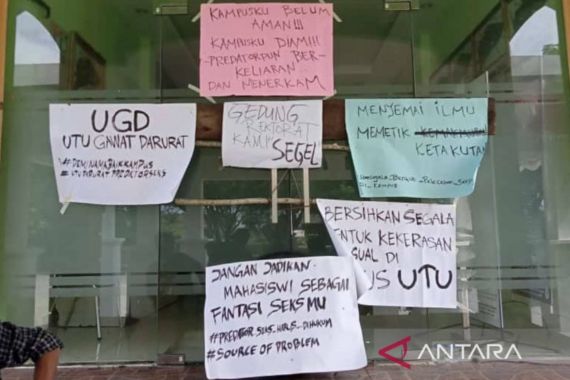 KAMPUSKU BELUM
AMAN!!!
KAMPUSKU DIAM!!!
PREDATORPUN BER-
KELIARAN
DAN MENERKAM
UGD
UTU GAWAT DARURAT
#DEMINAMABAIKKAMPUS
#UTUDARURATPREDATORSEKS
GEDUNG
REKTORAT
KAMI
SEGEL
MENJEMAI ILMU
MEMETIK
KETAKUTAN
BERSIHKAN SEGALA
BENTUK KEKERASAN
SUAL DI
US UTU
JANGAN JADIKAN
MAHASISWI SEBAGAI
FANTASI SEKSMU
#PREDATOR_SEKS_HARUS_DIHUKUM
#SOURCE OF PROBLEM
ANTARA